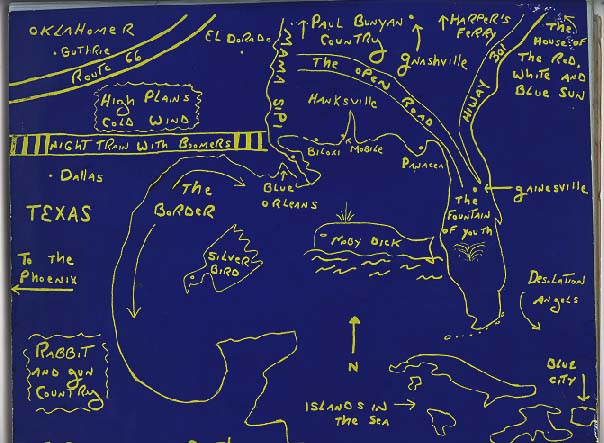 OKLAHOMER
GUTHRIE
ROUTE 66
EL DORADO
MAMA SPI
PAUL BUNYAN
COUNTRY
GNASHVILLE
HARPER'S
FERRY
HIWAY 301
THE
HOUSE OF
THE RED,
WHITE AND
BLUE SUN
THE OPEN ROAD
HIGH PLAINS
COLD WIND
HANKSVILLE
NIGHT TRAIN WITH BOOMERS
BILOXI
MOBILE
PANACEA
DALLAS
TEXAS
THE
BORDER
BLUE
ORLEANS
GAINESVILLE
THE
FOUNTAIN
OF YOUTH
MOBY DICK
SILVER
BIRD
TO THE
PHOENIX
DESOLATION
ANGELS
RABBIT
AND GUN
COUNTRY
N
ISLANDS IN
THE SEA
BLUE
CITY